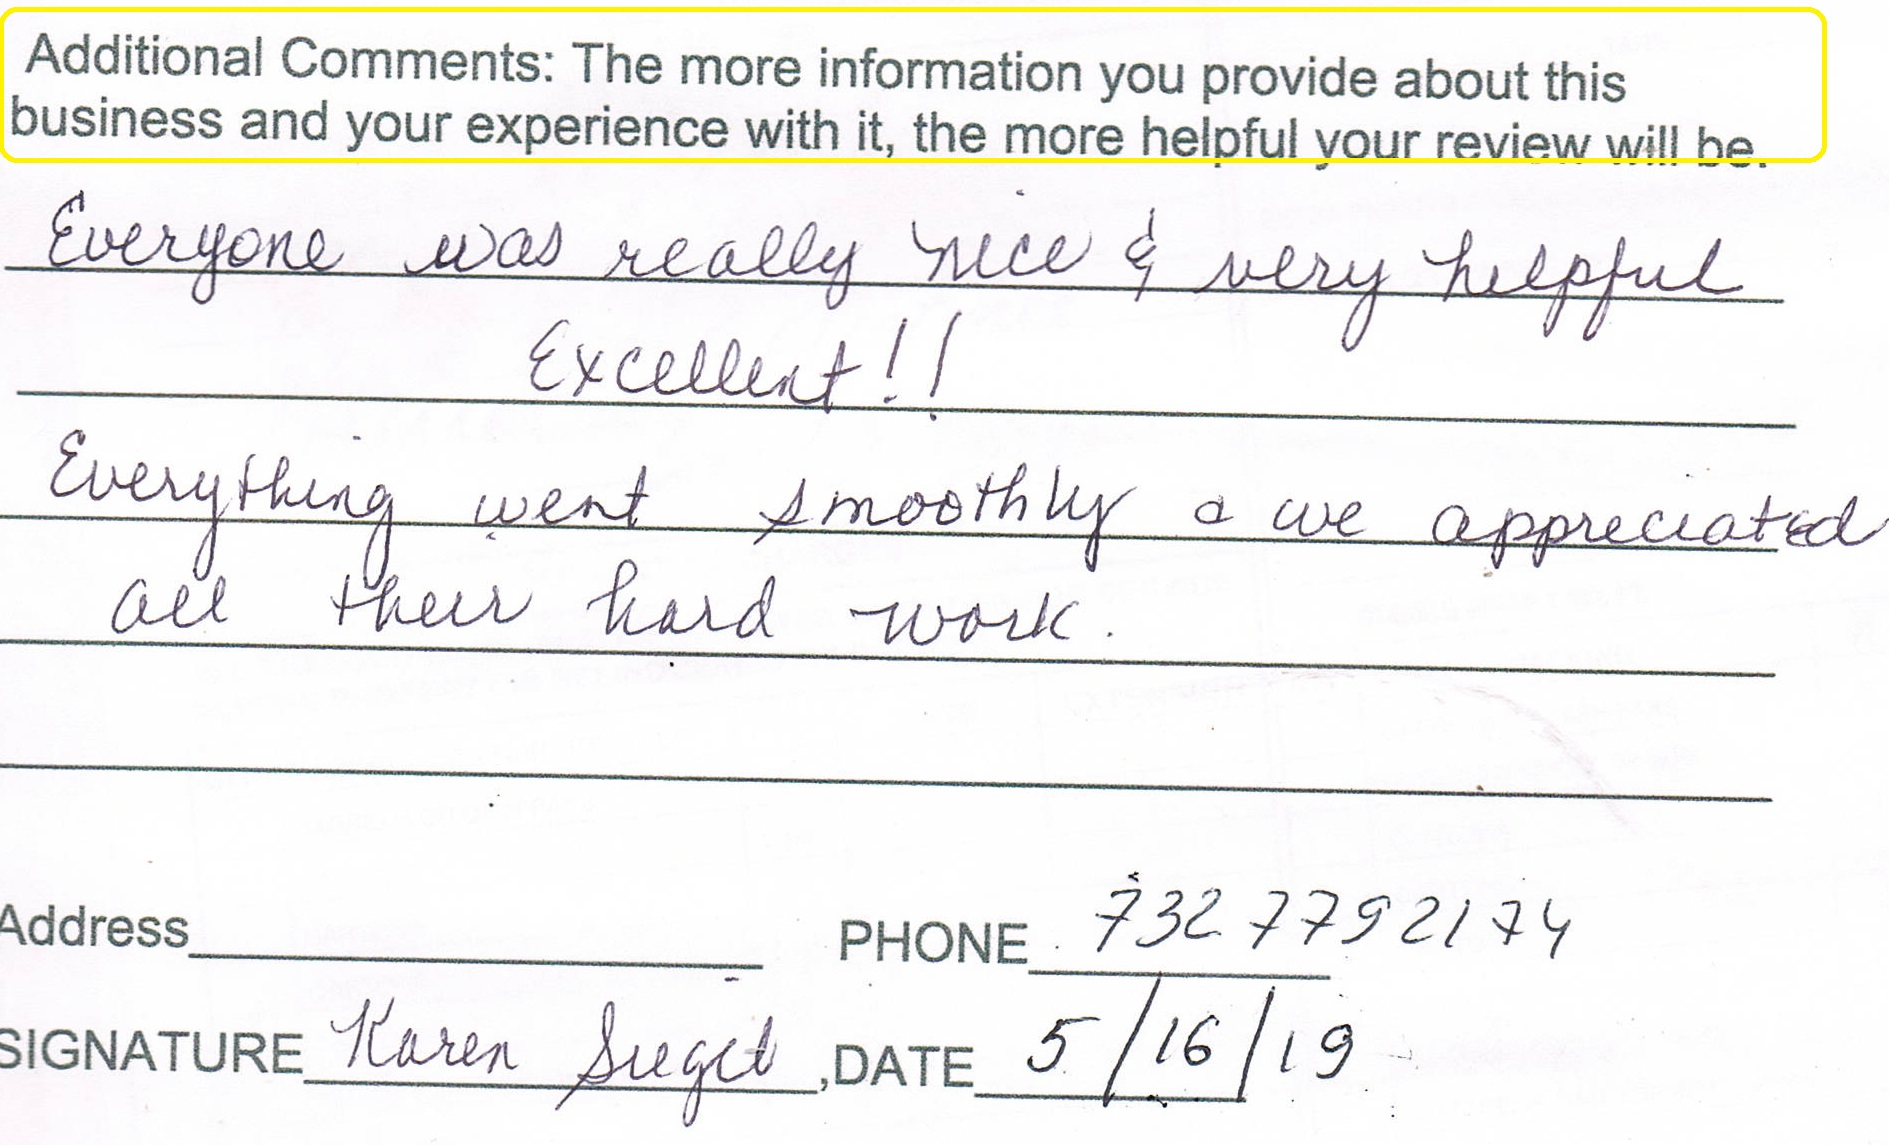 Additional Comments: The more information you provide about this
business and your experience with it, the more helpful your review will be.
Everyone was really nice & very helpful
Excellent!!
Everything went smoothly & we appreciated
all their hard work.
Address
PHONE 732 7792174
SIGNATURE Karen Siegel ,DATE 5/16/19